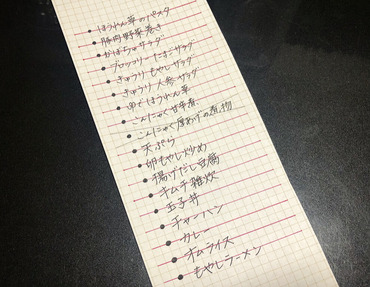 ● ほうれん草のパスタ
● 豚肉野菜巻き
● かぼちゃサラダ
● ブロッコリーたまごサラダ
● きゅうりもやしサラダ
● きゅうり人参サラダ
● ゆでほうれん草
● こんにゃく甘辛煮
● こんにゃく厚あげの煮物
● 天ぷら
● 卵もやし炒め
● 揚げだし豆腐
● キムチ雑炊
● 玉子丼
● チャーハン
● カレー
● オムライス
● もやしラーメン